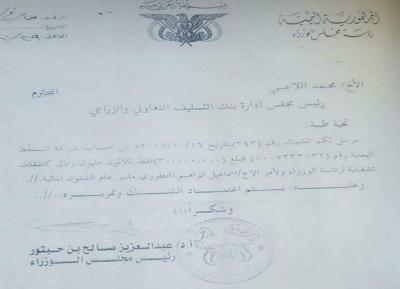 الجمهورية اليمنية
رئاسة مجلس الوزراء
الرقم:
التاريخ:
الموافق:
الأخ/ محمد اللاعي المحترم
رئيس مجلس ادارة بنك التسليف التعاوني والزراعي
تحية طيبة:
مرسل لكم الشيك رقم (٣٤٣) بتاريخ ٢٠١٧/١٠/١٦ من حساب شركة النفط
اليمنية رقم (١٠٠٥٣٣٣٠٣٢) بمبلغ (٣٠,٠٠٠,٠٠٠) فقط ثلاثون مليون ريال كنفقات
تشغيلية لرئاسة الوزراء ولأمر الأخ/ اسماعيل ابراهيم العطوري مدير عام الشئون المالية.//..
وعليه: يتم اعتماد الشيك وتمريره..//..
وشكراً،،،
أ.د/ عبدالعزيز صالح بن حبتور
رئيس مجلس الوزراء